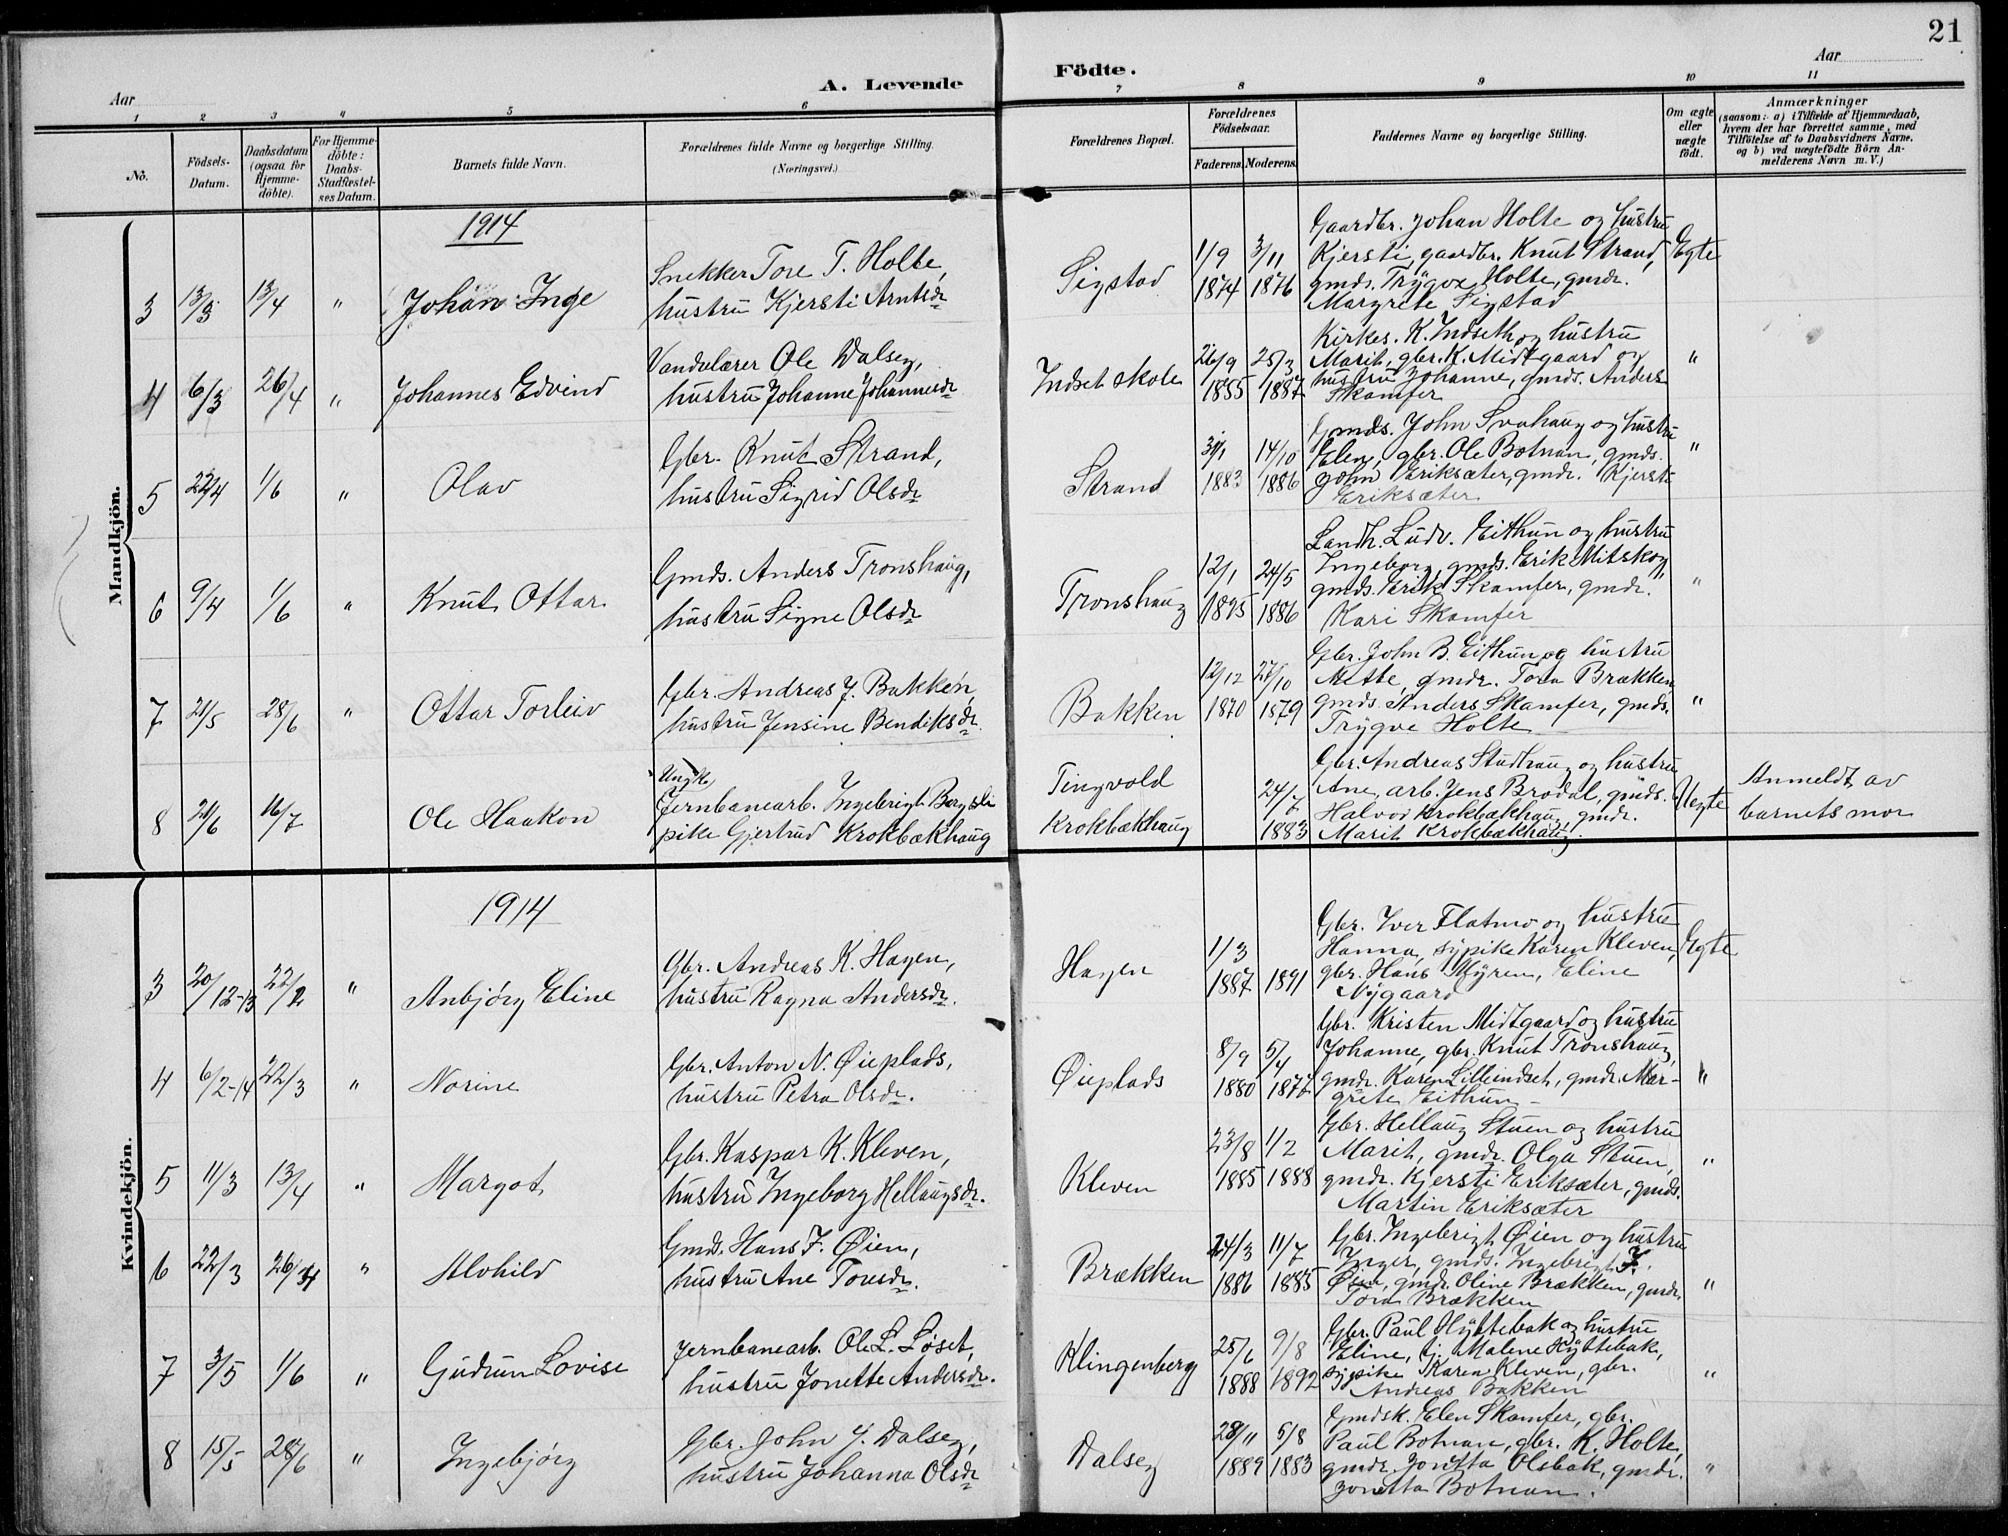 21
A. Levende Födte.
Aar
Aar
1 2 3 4 5 6 7 8 9 10 11
No.
Födsels-Datum.
Daabsdatum (ogsaa for Hjemme-döbte).
For Hjemme-döbte: Daabs-Stadfæstel-ses Datum.
Barnets fulde Navn.
Forældrenes fulde Navne og borgerlige Stilling. (Næringsvei.)
Forældrenes Bopæl.
Forældrenes Födselsaar.
Faderens. Moderens.
Faddernes Navne og borgerlige Stilling.
Om ægte eller uægte födt.
Anmærkninger
(saasom: a) i Tilfælde af Hjemmedaab,
hvem der har forrettet samme, med
Tilföielse af to Daabsvidners Navne.
og b) ved uægtefödte Börn An-
melderens Navn m. V.)
Mandkjön.
1914
3 13/3 13/4 " Johan Inge
Snekker Tore T. Holte,
hustru Kjersti Arntsdr
Sigstad
1/9 1874 3/11 1876
Gaardbr. Johan Holte og hustru
Kjersti, gaardbr. Knut Strand,
gmds. Trygve Holte, gmdr.
Margrete Sigstad
Egte
4 6/3 26/4 " Johannes Edvind
Vandrelærer Ole Dalseg,
hustru Johanne Johannesdr
Indset skole
26/9 1885 25/3 1887
Kirkes. K. Indseth og hustru
Marit, gbr. K. Midtgaard og
hustru Johanne, gmds. Anders
Skamfer
"
5 22/4 1/6 " Olav
Gbr. Knut Strand,
hustru Sigrid Olsdr
Strand
1883 14/10 1886
Gmds. John Svahaug og hustru
Elen, gbr. Ole Botnan, gmds.
John Eriksæter, gmdr. Kjersti
Eriksæter
"
6 9/4 1/6 " Knut Ottar
Gmds. Anders Tronshaug,
hustru Signe Olsdr
Tronshaug
12/1 24/5 1886
Landh. Ludv. Eithun og hustru
Ingeborg, gmds. Erik Mitskog,
gmds. Erik Skamfer, gmdr.
Kari Skamfer
"
7 2/5 28/6 " Ottar Torleiv
Gbr. Andreas J. Bakken,
hustru Jensine Bendiksdr.
Bakken
12/12 1870 1879
Gbr. John B. Eithun og hustru
Mette, gmdr. Tora Brækken,
gmds. Anders Skamfer, gmds.
Trygve Holte
"
8 16/7 Ole Haakon
Ungk.
Jernbanearb. Ingebrigt Bergsli
pike Gjertrud Krokbækhaug
Tingvold
Krokbækhaug
24/7 1883
Gbr. Andreas Studhaug og hustru
Ane, arb. Jens Brødal, gmds.
Halvor Krokbækhaug, gmdr.
Marit Krokbækhaug
Uegte
Anmeldt av
barnets mor
Kvindekjön.
1914
3 20/12-13 22/2 " Anbjørg Eline
Gbr. Andreas K. Hagen,
hustru Ragna Andersdr.
Hagen
1/3 1887 1891
Gbr. Iver Flatmo og hustru
Hanna, sypike Karen Kleven,
gbr. Hans Myren, Eline
Nygaard
Egte
4 6/2-14 22/3 " Norine
Gbr. Anton N. Øieplads,
hustru Petra Olsdr.
Øieplads
8/9 1880 5/4
Gbr. Kristen Midtgaard og hustru
Johanne, gbr. Knut Tronshaug,
gmdr. Karen Lilleindset, gmdr. Mar-
grete Eithun
"
5 11/3 13/4 " Margot
Gbr. Kaspar K. Kleven,
hustru Ingeborg Hellaugsdr.
Kleven
23/8 1885 1/2 1888
Gbr. Hellaug Stuen og hustru
Marit, gmdr. Olga Stuen,
gmdr. Kjersti Eriksæter, gmds.
Martin Eriksæter
"
6 22/3 26/4 " Alvhild
Gmds. Hans J. Øien,
hustru Ane Toresdr.
Brækken
24/3 1886 11/7 1885
Gbr. Ingebrigt Øien og hustru
Inger, gmds. Ingebrigt J.
Øien, gmdr. Oline Brækken, gmdr.
Tora Brækken
"
7 3/5 1/6 " Gudrun Lovise
Jernbanearb. Ole L. Løset,
hustru Jonette Andersdr.
Klingenberg
25/6 1888 9/8 1892
Gbr. Paul Hyttebak og hustru
Eline, tj. Malene Hyttebak,
sypike Karen Kleven, gbr.
Andreas Bakken
"
8 15/5 28/6 " Ingebjørg
Gbr. John J. Dalseg,
hustru Johanna Olsdr
Dalseg
28/11 1889 5/8 1883
Gmdsk. Elen Skamfer, gbr.
Paul Botnan, gbr. K. Holte,
gmdr. Jonetta Olsbak, gmdr.
Jonetta Botnan.
"